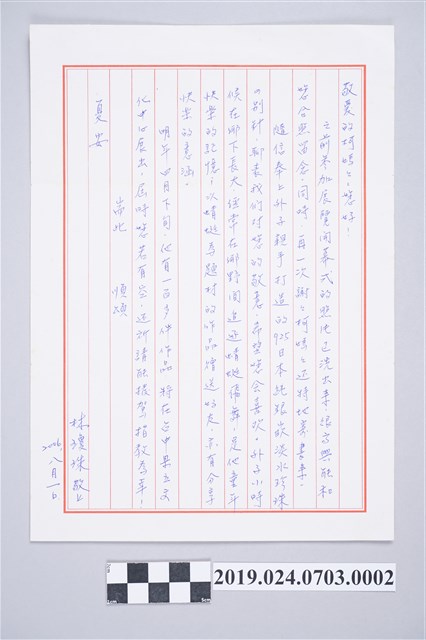 敬愛的柯媽媽:您好!
之前參加展覽開幕式的照片已洗出來,很高興能和
您合照留念,同時,再一次謝謝柯媽媽還特地寄書來。
隨信奉上外子親手打造的925日本純銀嵌淡水珍珠
別針,聊表我們對您的敬意,希望您會喜歡。外子小時
候在鄉下長大,經常在鄉野間追逐蜻蜓偏舞,是他童年
快樂的記憶;以蜻蜓為題材的作品贈送好友,亦有分享
快樂的意涵。
明年四月下旬,他有一百多件作品將在台中縣立文
化中心展出,屆時您若有空,還祈請能撥駕指教為幸!
耑此 順頌
夏安
林瓊珠 敬上
2006,八月一日
cm
5cm
2019.024.0703.0002